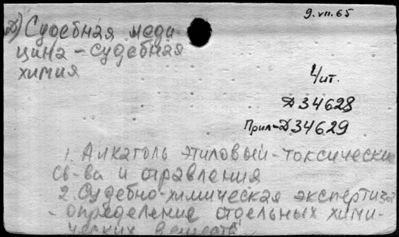 9.VII.65
Д) Судебная меди-
цина – судебная
химия
1/чит.
Д34628
Прил-Д34629
1. Алкаголь этиловый-токсически
св-ва и отравления
2. Судебно-химическая экспертиза
- определение отдельных хими-
ческих веществ